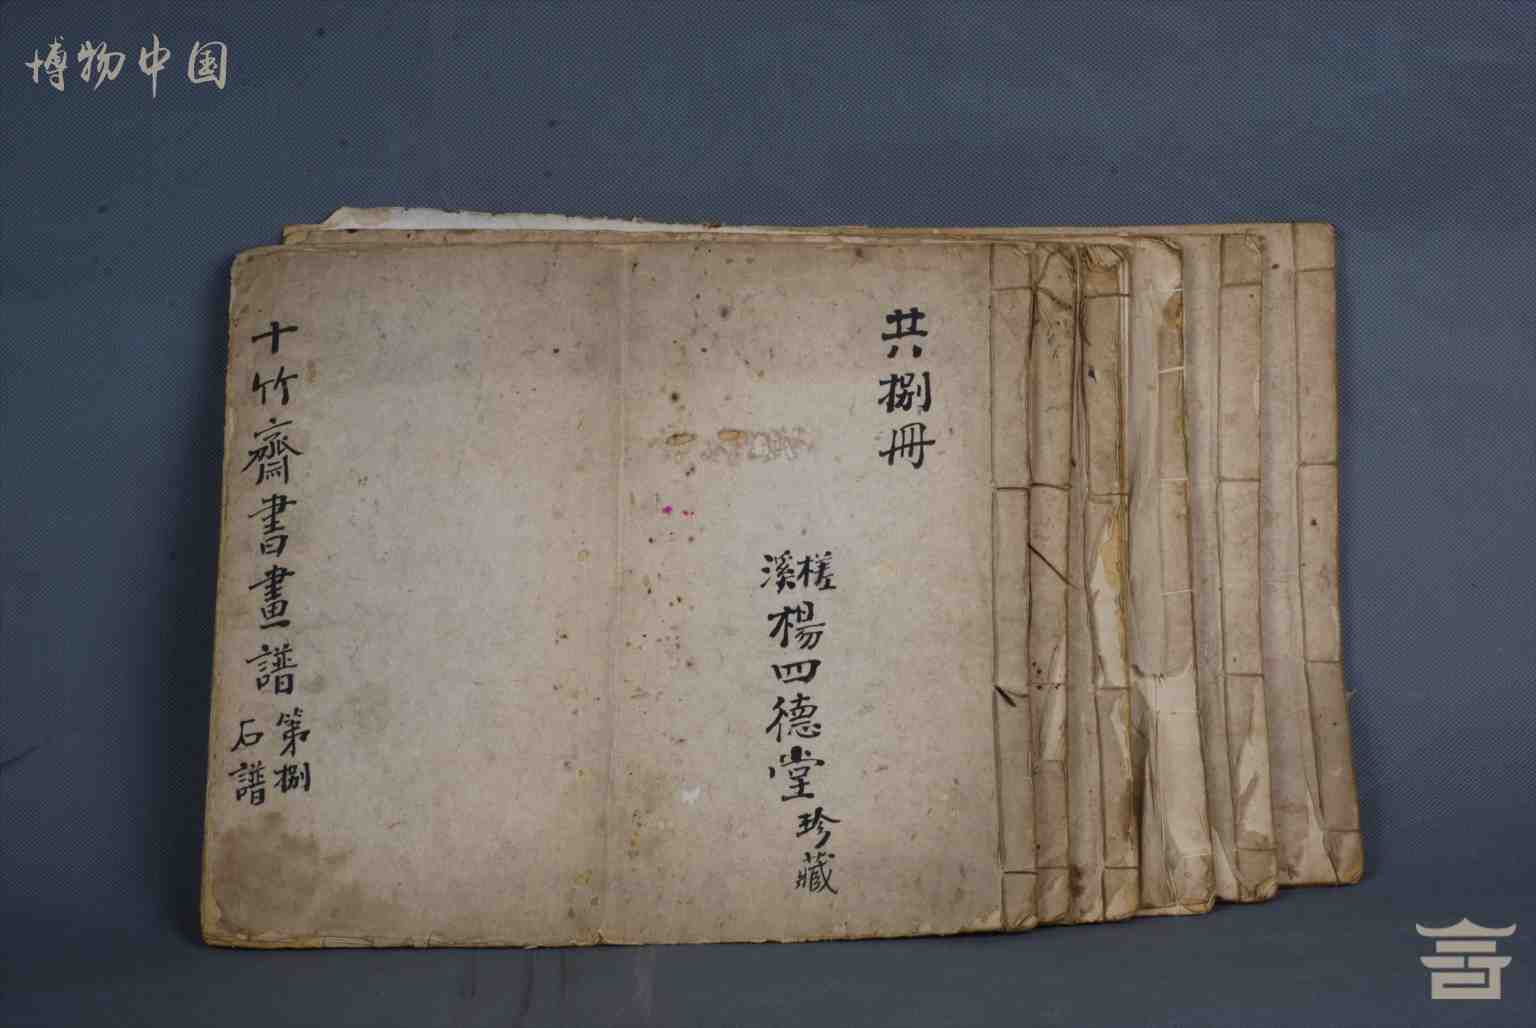 博物中国
共捌冊
槎溪
楊四德堂珍藏
十竹齋書畫譜
第捌
石譜